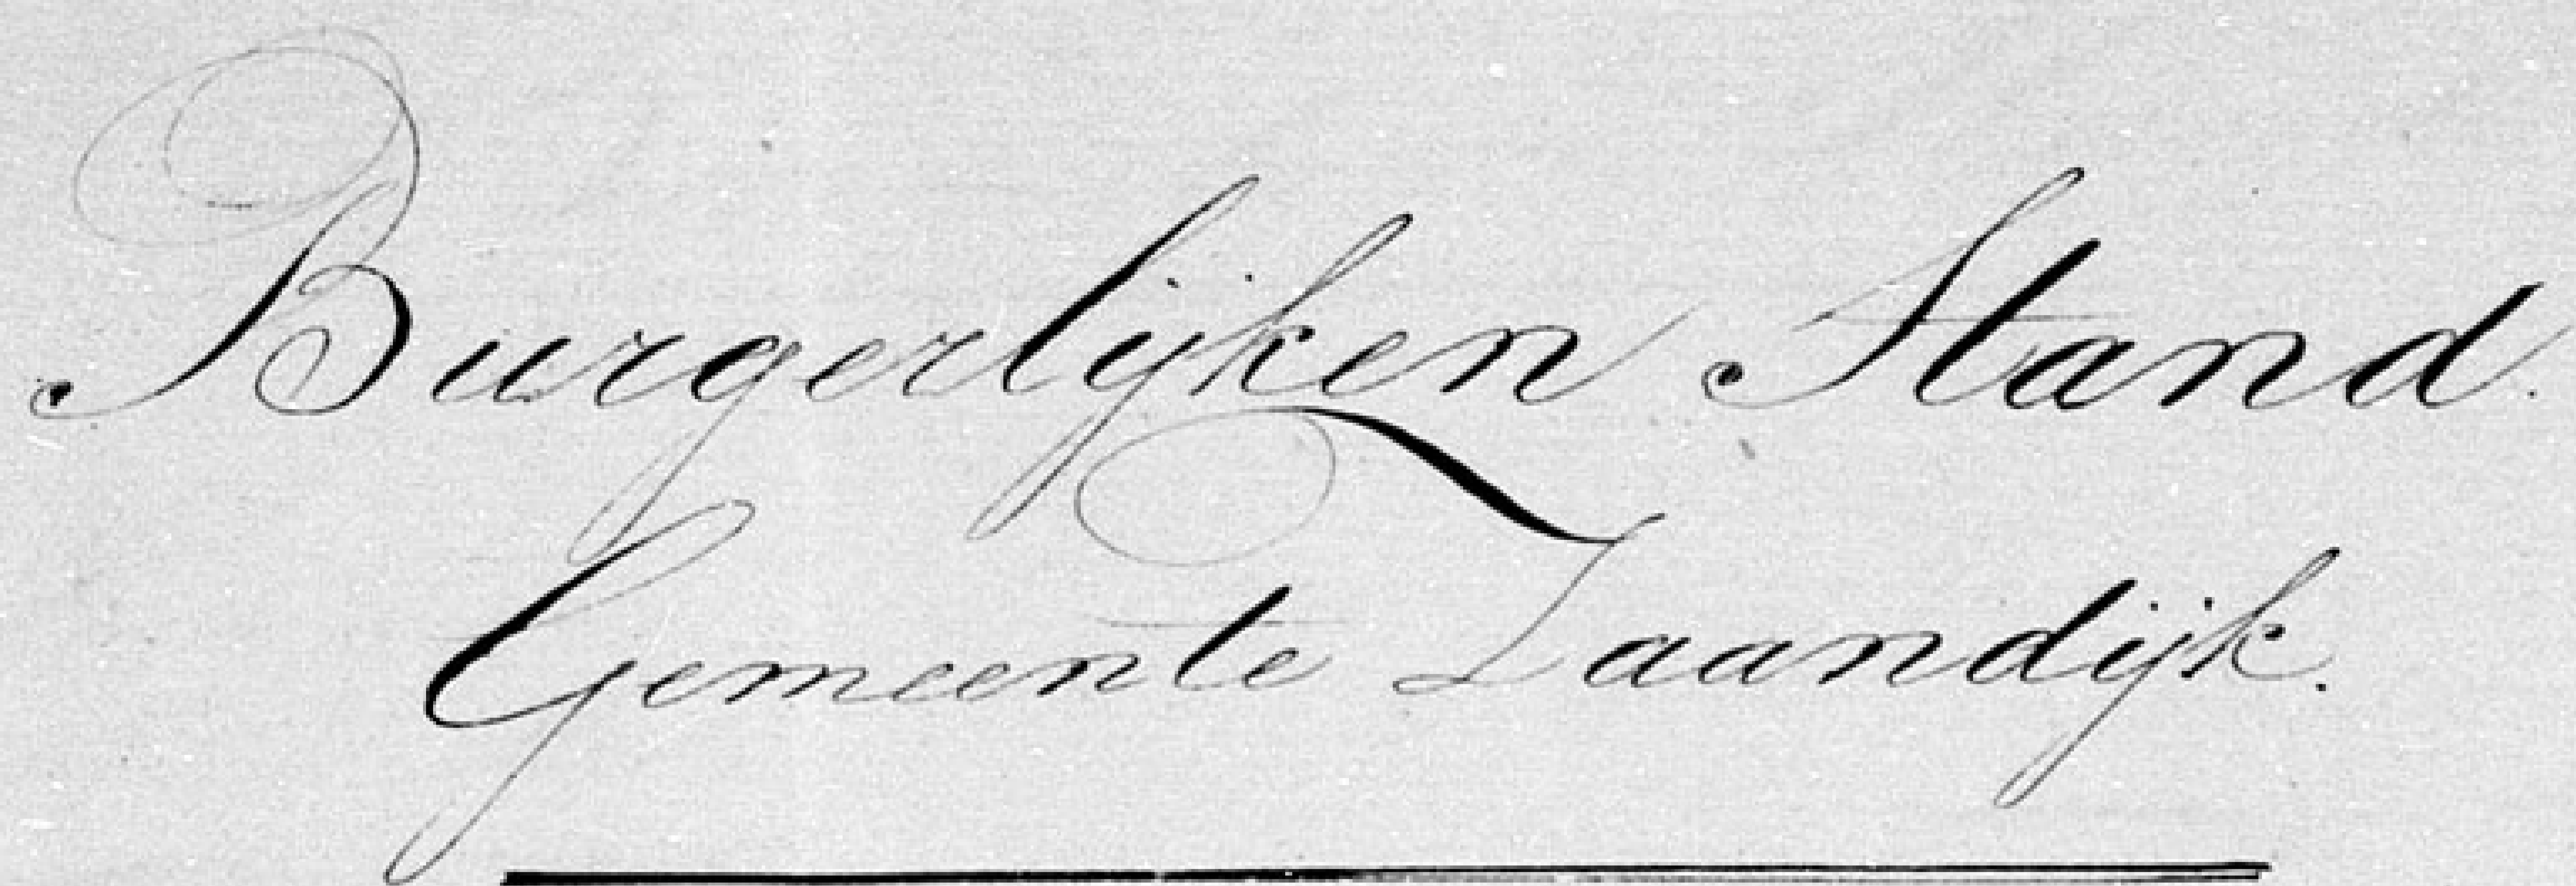 Burgerlijken Stand.
Gemeente Zaandijk.